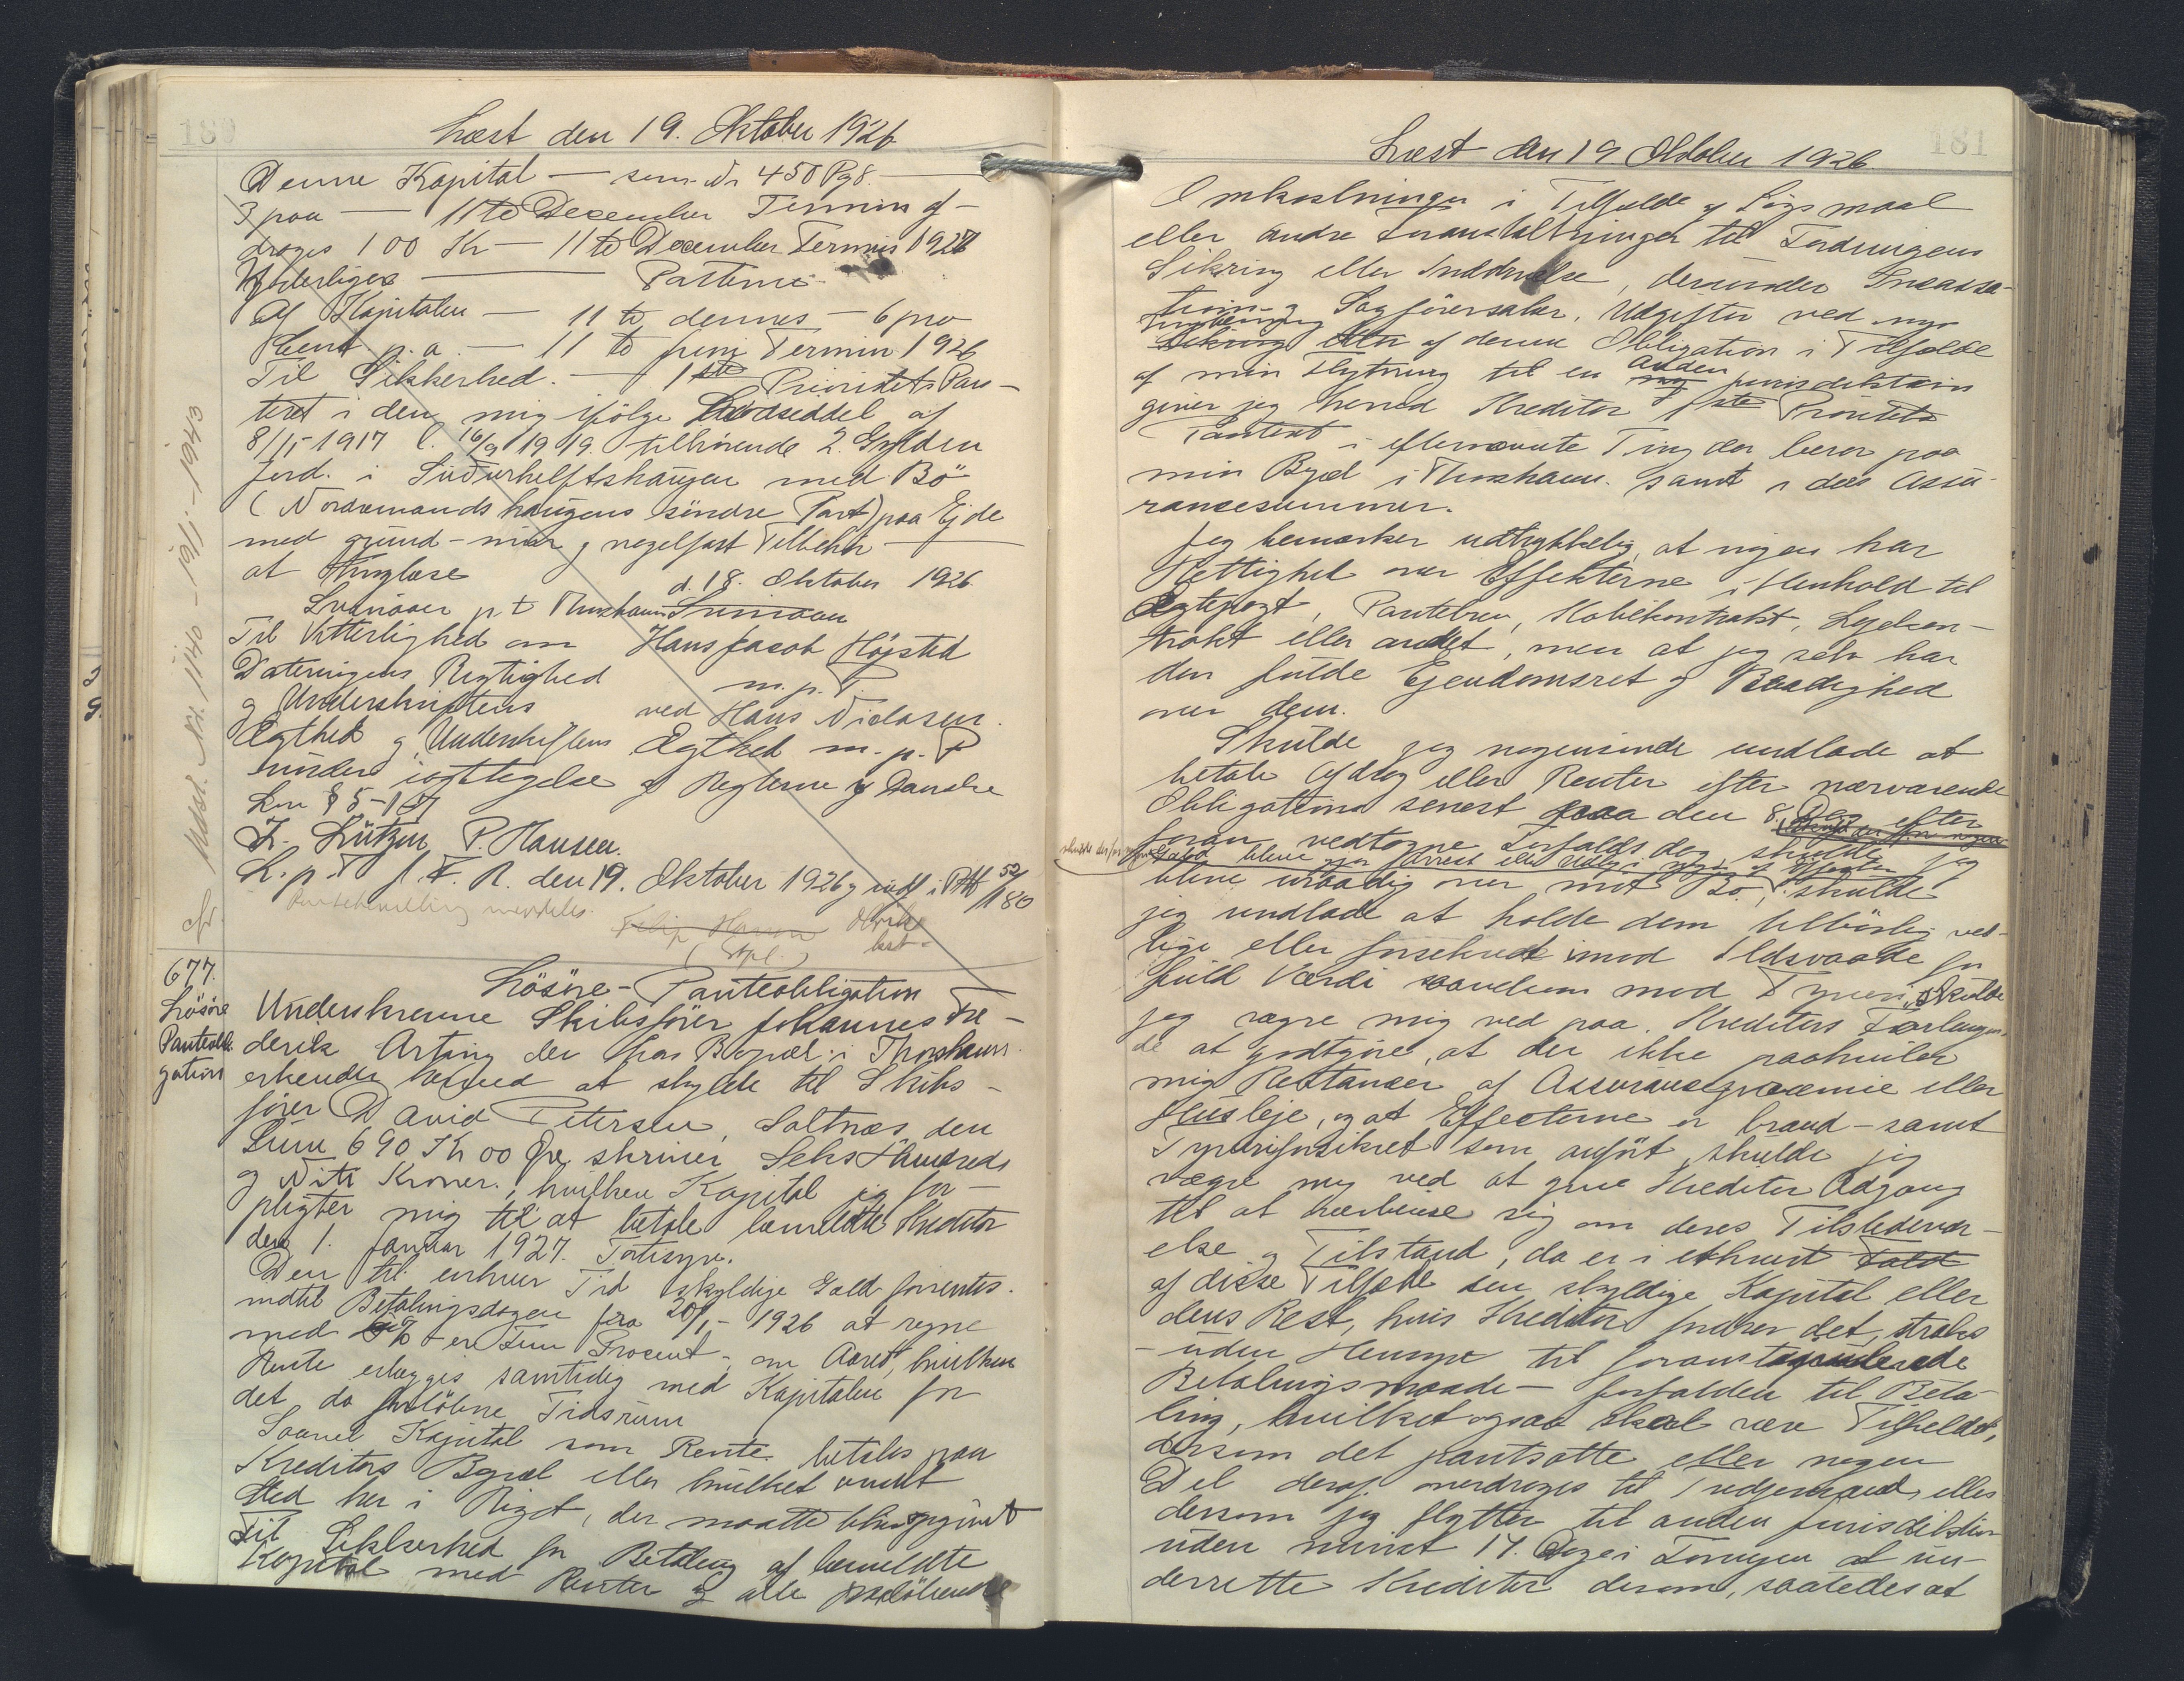 180
Læst den 19. Oktober 1926
Denne Kapital — som Nr 450 Pg 8.
3 paa — 11 te December Termin af-
drages 100 Kr — 11 te December Termin 1927
Yderligere —
Af Kapitalen — 11 te dennes — 6 pro
Cent p.a. — 11 te Juni Termin 1926
Til Sikkerhed. — 1 ste Prioritets Pan-
teret i den mig ifölge Lodseddel af
8/11 1917 l. 16/9 1919. tilhörende 2. Gylden
Jord. i Suðurhelftshaugen med Bö
(Nordmandshaugens söndre Part) paa Ejde
med grund- mur og nagelfast Tilbehör
at tinglæse
d. 18. Oktober 1926
Svinöen p.t Thorshavn Svinöen
Til Vitterlighed om Hans Jacob Höjsted
Dateringens Rigtighed m. p. P.
og Underskriftens ved Hans Niclasen.
Ægthed og Underskriftens Ægthed m. p. P
under iagttagelse af Reglerne i Danske
Lov § 5-1-7
L. Lützen P. Hansen.
L. p. T f. F. R. den 19. Oktober 1926 og indf. i Ptb 52/180
Udsl. Nr. 1140 - 19/11 - 1943
677.
Lösöre
Panteobli
gation
Lösöre-Panteobligation
Undertegnede Skibsförer Johannes Fre-
derik Arting der har Bopæl i Thorshavn
erkender herved at skylde til Skibs-
förer David Petersen, Saltnes den
Sum 690 Kr 00 Öre, skriver Seks Hundrede
og Niti Kroner., hvilken Kapital jeg for-
pligter mig til at betale bemeldte Kreditor
den 1. Januar 1927. Totisyv.
Den til enhver Tid skyldige Gæld forrentes
indtil Betalingsdagen fra 20/1- 1926 at regne
med 5% - er Fem Procent - om Aaret, hvilken
Rente erlægges samtidig med Kapitalen for
det da forlöbne Tidsrum
Saavel Kapital som Rente betales paa
Kreditors Bopæl eller hvilket andet
Sted her i Riget, der maatte blive opgivet
Til Sikkerhed for Betaling af bemeldte
Kapital med Renter og alle paalöbende
181
Læst den 19 Oktober 1926.
Omkostninger i Tilfælde af Sögsmaal
eller andre Foranstaltninger til Fordringens
Sikring eller Inddrivelse, derunder Incassa-
tions- og Sagförersalær, Udgifter ved ny
Tinglæsning af denne Obligation i Tilfælde
af min Flytning til en anden Jurisdiktion
giver jeg herved Kreditor 1ste Prioritets
Panteret i efternævnte Ting der beror paa
min Bopæl i Thorshavn. samt i des Assu-
rancesummer.
Jeg bemærker udtrykkelig, at ingen har
Rettighed over Effekterne i Henhold til
Ægtepagt, Pantebrev, Købekontrakt, Lejekon-
trakt eller andet, men at jeg selv har
den fulde Ejendomsret og Raadighed
over dem.
Skulde jeg nogensinde undlade at
betale Afdrag eller Renter efter nærværende
Obligation senest paa den 8. Dag efter
foran vedtagne Forfaldsdag, skulde jeg
blive uraadig over mit Bo, skulde
jeg undlade at holde dem tilbörlig ved-
lige eller forsikret imod Ildsvaade for
fuld Værdi saavelsom mod Tyveri, skulde
jeg vægre mig ved paa Kreditors Forlangen-
de at godtgöre, at der ikke paahviler
mig Restancer af Assurancepræmie eller
Husleje, og at Effecterne er brand- samt
Tyveriforsikret som anfört, skulde jeg
vægre mig ved at give Kreditor Adgang
til at overbevise sig om deres Tilstedevær-
else og Tilstand, da er i ethvert
af disse Tilfælde den skyldige Kapital eller
dens Rest, hvis Kreditor fordrer det, straks
- uden Hensyn til foranstipulerede
Betalingsmaade - forfalden til Beta-
ling, hvilket ogsaa skal være Tilfældet,
dersom det pantsatte eller nogen
Del deraf overdrages til Tredjemand, eller
dersom jeg flytter til anden Jurisdiktion
uden mindst 14. Dage i Forvejen at un-
derrette Kreditor derom, saaledes at